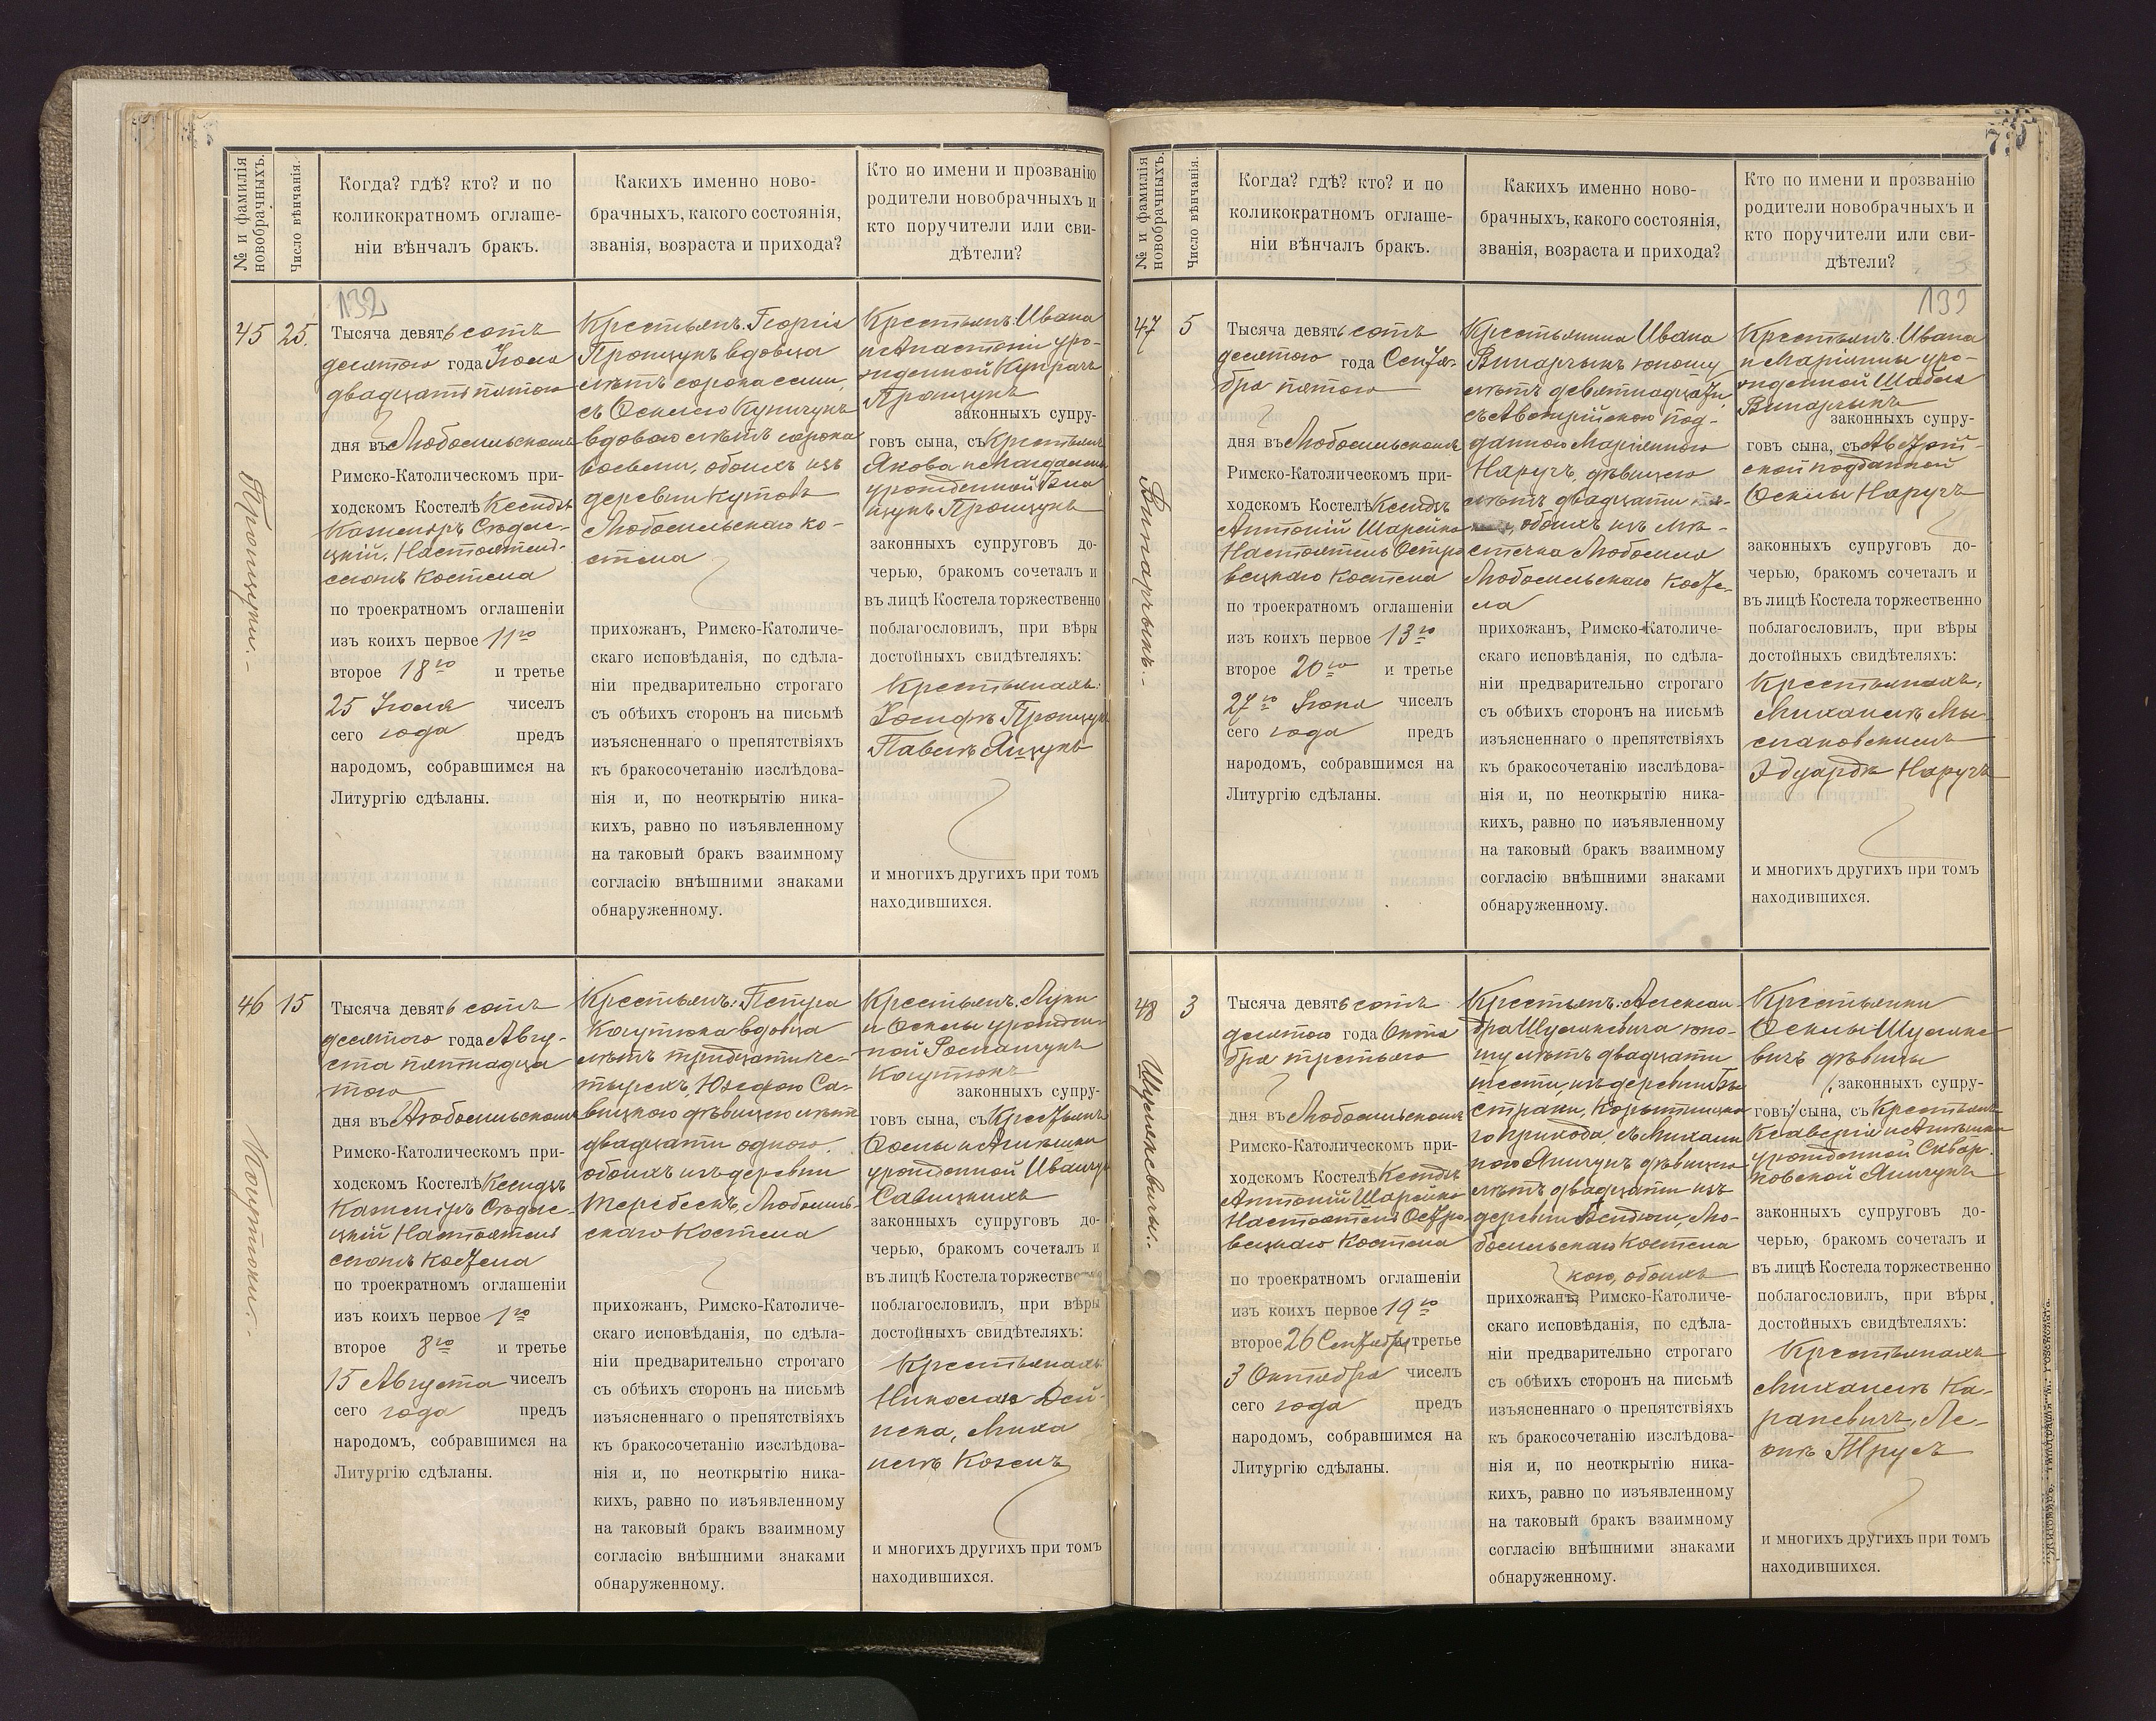 № и фамилія новобрачныхъ.
Число вѣнчанія.
Когда? гдѣ? кто? и по
коликократномъ оглаше-
ніи вѣнчалъ бракъ.
Каких­ъ именно ново-
брачныхъ, какого состоянія,
званія, возраста и прихода?
Кто по имени и прозванію
родители новобрачныхъ и
кто поручители или сви-
дѣтели?
45
25.
132
Тысяча девятьсотъ
десятого года Іюля
двадцать пятого
дня въ Любомльскомъ
Римско-Католическомъ при-
ходскомъ Костелѣ Ксендзъ
Казимiръ
Настоятель
сего костела
по троекратномъ оглашеніи
изъ коихъ первое 11го
второе 18го и третье
25 Іюля чиселъ
сего года предъ
народомъ, собравшимся на
Литургію сдѣланы.
Крестьянъ: Георгія
вдовца
лѣтъ сорока семи,
съ
вдовою лѣтъ сорока
восьми, обоихъ изъ
деревни
Любомльскаго ко-
стела
прихожанъ, Римско-Католиче-
скаго исповѣданія, по сдѣла-
ніи предварительно строгаго
съ обѣихъ сторонъ на письмѣ
изъясненнаго о препятствіяхъ
къ бракосочетанію изслѣдова-
нія и, по неоткрытію ника-
кихъ, равно по изъявленному
на таковый бракъ взаимному
согласію внѣшними знаками
обнаруженному.
Крестьянъ: Ивана
и Анастасіи уро-
жденной
законныхъ супру-
говъ сына, съ Крестьянъ
Якова и Магдалины
урожденной
законныхъ супруговъ до-
черью, бракомъ сочеталъ и
въ лицѣ Костела торжественно
поблагословилъ, при вѣры
достойныхъ свидѣтеляхъ:
Крестьянахъ:
Іосифъ
Павелъ Ящукъ
и многихъ другихъ при томъ
находившихся.
46
15
Тысяча девятьсотъ
десятого года Авгу-
ста пятнадца
того
дня въ Любомльскомъ
Римско-Католическомъ при-
ходскомъ Костелѣ Ксендзъ
Казимiръ
Настоятель
сего костела
по троекратномъ оглашеніи
изъ коихъ первое 1го
второе 8го и третье
15 Августа чиселъ
сего года предъ
народомъ, собравшимся на
Литургію сдѣланы.
Крестьянъ: Петра
вдовца
лѣтъ тридцати че-
тырехъ, Юзефою Са-
вицкою дѣвицею лѣтъ
двадцати одного,
обоихъ изъ деревни
Любомль-
скаго Костела
прихожанъ, Римско-Католиче-
скаго исповѣданія, по сдѣла-
ніи предварительно строгаго
съ обѣихъ сторонъ на письмѣ
изъясненнаго о препятствіяхъ
къ бракосочетанію изслѣдова-
нія и, по неоткрытію ника-
кихъ, равно по изъявленному
на таковый бракъ взаимному
согласію внѣшними знаками
обнаруженному.
Крестьянъ: Луки
и урожден-
ной
законныхъ супру-
говъ сына, съ Крестьянъ
и
урожденной
Савицкихъ
законныхъ супруговъ до-
черью, бракомъ сочеталъ и
въ лицѣ Костела торжественно
поблагословилъ, при вѣры
достойныхъ свидѣтеляхъ:
Крестьянахъ:
Николай
Миха
илъ Козелъ
и многихъ другихъ при томъ
находившихся.
№ и фамилія новобрачныхъ.
Число вѣнчанія.
Когда? гдѣ? кто? и по
коликократномъ оглаше-
ніи вѣнчалъ бракъ.
Какихъ именно ново-
брачныхъ, какого состоянія,
званія, возраста и прихода?
Кто по имени и прозванію
родители новобрачныхъ и
кто поручители или сви-
дѣтели?
47
5
Винарчыкъ.
Тысяча девятьсотъ
десятого года Сентя-
бря пятого
дня въ Любомльскомъ
Римско-Католическомъ при-
ходскомъ Костелѣ Ксендзъ
Антоній Шарейко
Настоятель Остро
вецкаго Костела
по троекратномъ оглашеніи
изъ коихъ первое 13го
второе 20го и третье
27го чиселъ
сего года предъ
народомъ, собравшимся на
Литургію сдѣланы.
Крестьянина Ивана
Винарчыкъ юношу
лѣтъ девятнадцати,
съ Австрійскою под-
данною Маріанною
Наручъ, дѣвицею
лѣтъ двадцати
обоихъ изъ мѣ-
стечка Любомля
Любомльскаго Косте-
ла
прихожанъ, Римско-Католиче-
скаго исповѣданія, по сдѣла-
ніи предварительно строгаго
съ обѣихъ сторонъ на письмѣ
изъясненнаго о препятствіяхъ
къ бракосочетанію изслѣдова-
нія и, по неоткрытію ника-
кихъ, равно по изъявленному
на таковый бракъ взаимному
согласію внѣшними знаками
обнаруженному.
139
Крестьянъ: Ивана
и Маріанны уро-
жденной
Винарчыкъ
законныхъ супру-
говъ сына, съ Австрій-
ской подданной
Наручъ
законныхъ супруговъ до-
черью, бракомъ сочеталъ и
въ лицѣ Костела торжественно
поблагословилъ, при вѣры
достойныхъ свидѣтеляхъ:
Крестьянахъ:
Михаилъ Мы-
Эдуардъ Наручъ
и многихъ другихъ при томъ
находившихся.
48
3
Шулякевичы.
Тысяча девятьсотъ
десятого года Октя
бря третьяго
дня въ Любомльскомъ
Римско-Католическомъ при-
ходскомъ Костелѣ Ксендзъ
Антоній Шарейко
Настоятель Остро-
вецкаго Костела
по троекратномъ оглашеніи
изъ коихъ первое 19го
второе 26 Сентября и третье
3 Октября чиселъ
сего года предъ
народомъ, собравшимся на
Литургію сдѣланы.
Крестьянъ: Алексан
дра Шулякевича юно-
шу лѣтъ двадцати
шести, изъ деревни Бы
страки,
го прихода, съ Михали
ною дѣвицею
лѣтъ двадцати изъ
деревни Лю-
бомльскаго Костела
кою, обоихъ
прихожанъ, Римско-Католиче-
скаго исповѣданія, по сдѣла-
ніи предварительно строгаго
съ обѣихъ сторонъ на письмѣ
изъясненнаго о препятствіяхъ
къ бракосочетанію изслѣдова-
нія и, по неоткрытію ника-
кихъ, равно по изъявленному
на таковый бракъ взаимному
согласію внѣшними знаками
обнаруженному.
Крестьянки
Шуляке
вичъ дѣвицы
законныхъ супру-
говъ сына, съ Крестьянъ
Ксаверія и
урожденной Сквар-
ковской
законныхъ супруговъ до-
черью, бракомъ сочеталъ и
въ лицѣ Костела торжественно
поблагословилъ, при вѣры
достойныхъ свидѣтеляхъ:
Крестьянахъ
Михаилъ Ка-
раневичъ, Ле-
онъ Трусъ
и многихъ другихъ при томъ
находившихся.